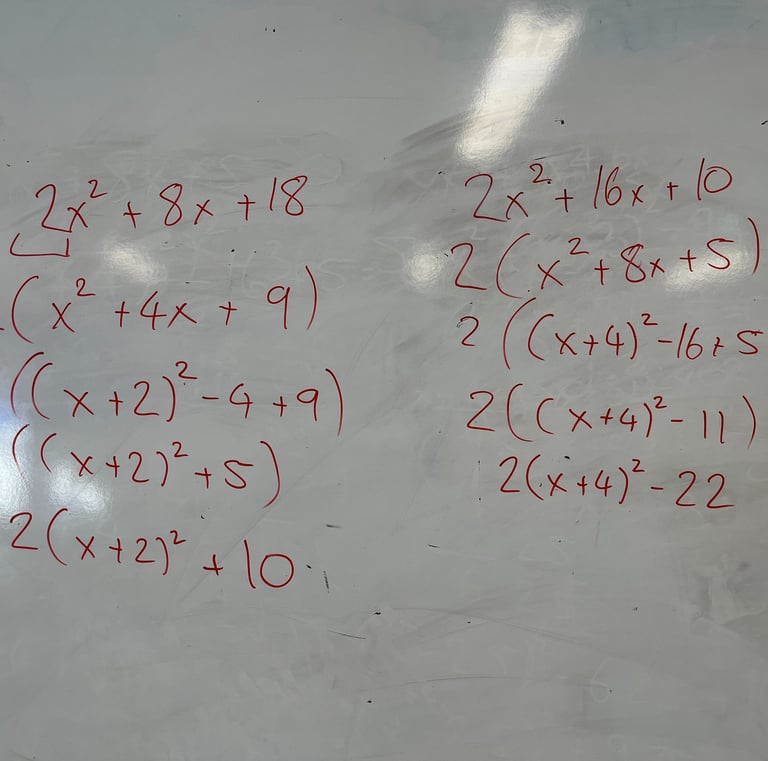 2x² + 8x + 18
(x² + 4x + 9)
((x+2)² - 4 + 9)
((x+2)² + 5)
2(x+2)² + 10
2x² + 16x + 10
2(x² + 8x + 5)
2((x+4)² - 16 + 5
2((x+4)² - 11)
2(x+4)² - 22